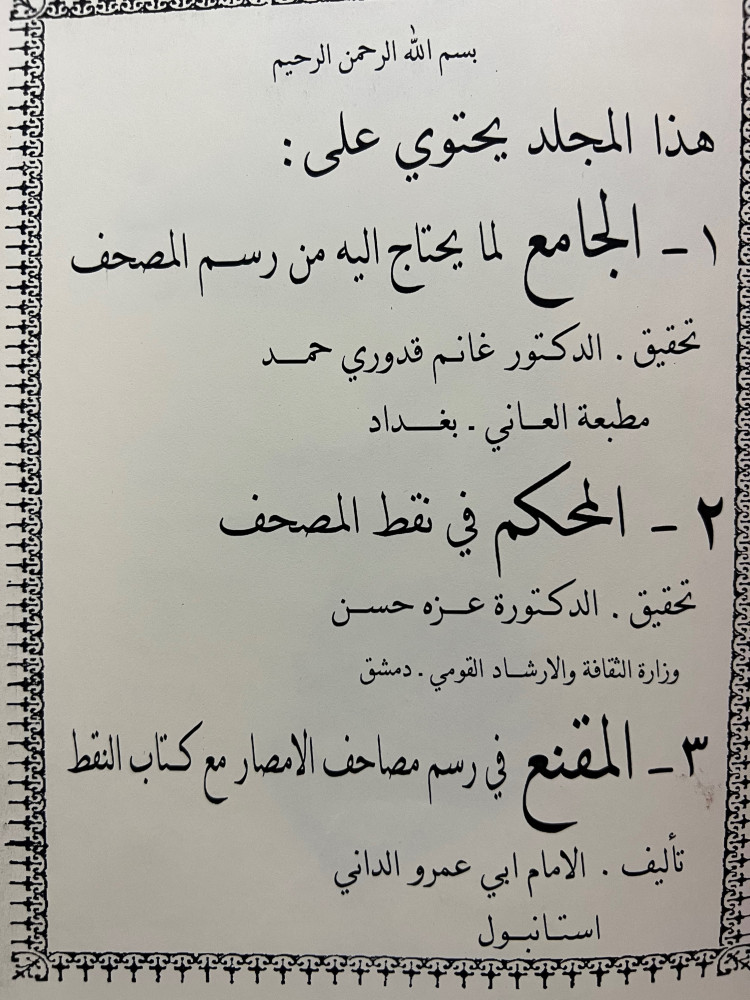 بسم الله الرحمن الرحيم
هذا المجلد يحتوي على :
١ ـ الجامع لما يحتاج اليه من رسم المصحف
تحقيق . الدكتور غانم قدوري حمد
مطبعة العاني . بغداد
٢ ـ المحكم في نقط المصحف
تحقيق . الدكتورة عزه حسن
وزارة الثقافة والارشاد القومي . دمشق
٣ ـ المقنع في رسم مصاحف الامصار مع كتاب النقط
تأليف . الامام ابي عمرو الداني
استانبول